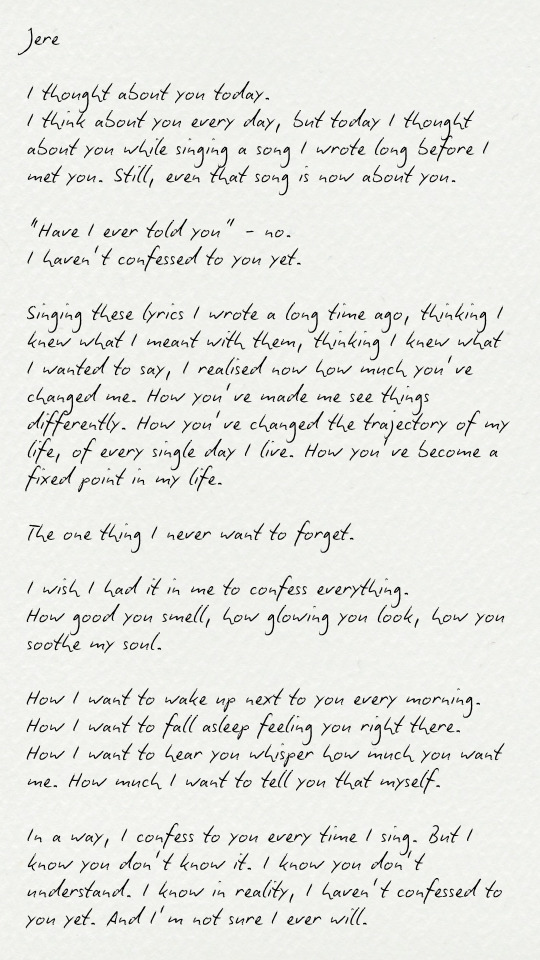 Jere
I thought about you today.
I think about you every day, but today I thought
about you while singing a song I wrote long before I
met you. Still, even that song is now about you.
"Have I ever told you" - no.
I haven't confessed to you yet.
Singing these lyrics I wrote a long time ago, thinking I
knew what I meant with them, thinking I knew what
I wanted to say, I realised now how much you've
changed me. How you've made me see things
differently. How you've changed the trajectory of my
life, of every single day I live. How you've become a
fixed point in my life.
The one thing I never want to forget.
I wish I had it in me to confess everything.
How good you smell, how glowing you look, how you
soothe my soul.
How I want to wake up next to you every morning.
How I want to fall asleep feeling you right there.
How I want to hear you whisper how much you want
me. How much I want to tell you that myself.
In a way, I confess to you every time I sing. But I
know you don't know it. I know you don't
understand. I know in reality, I haven't confessed to
you yet. And I'm not sure I ever will.